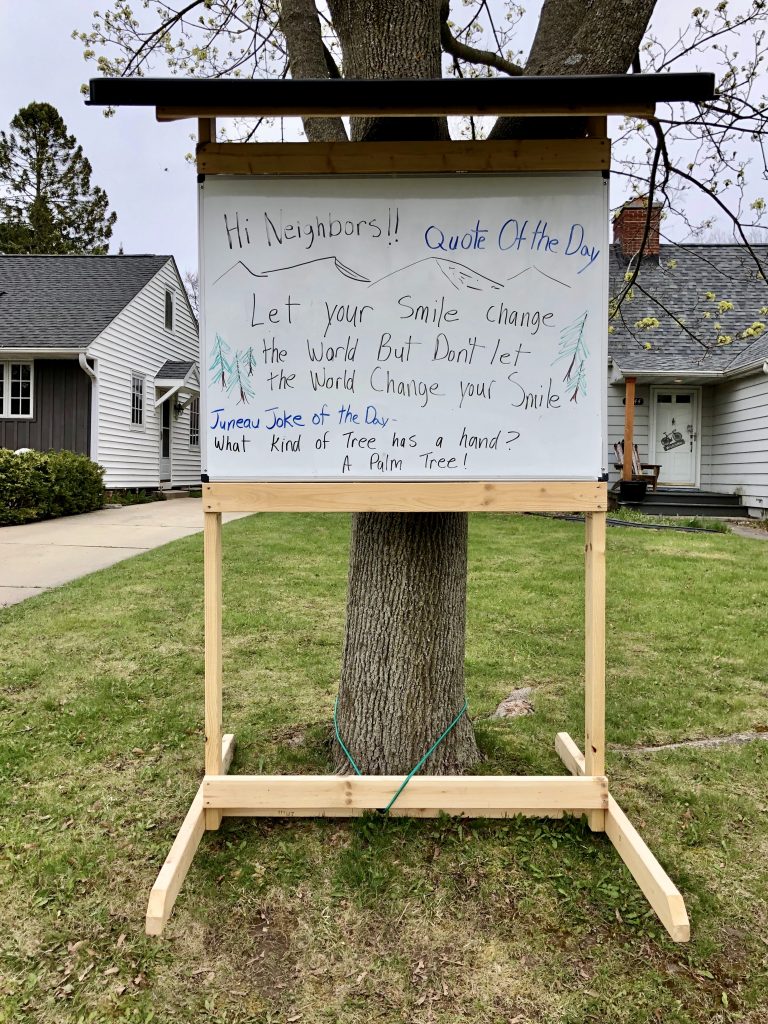 Hi Neighbors!!
Quote Of the Day
Let your Smile change
the World But Don't let
the World Change your Smile
Juneau Joke of the Day-
What kind of Tree has a hand?
A Palm Tree!